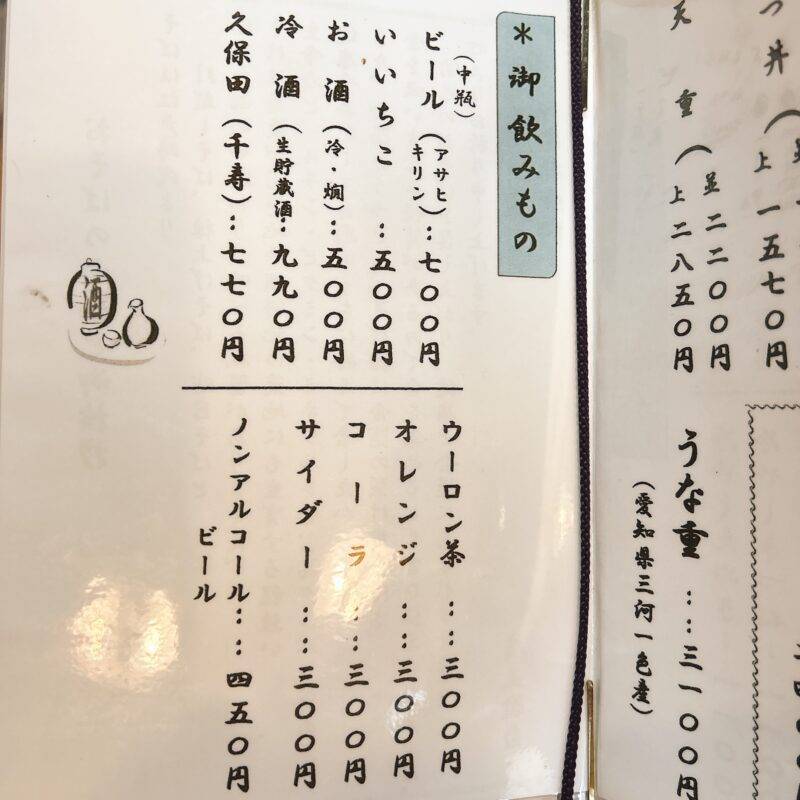 つ丼
上 一五七〇円
天重
(並 二二〇〇円
上 二八五〇円
うな重 ‥‥三一〇〇円
(愛知県三河一色産)
*御飲みもの
ビール(アサヒ
キリン)‥七〇〇円
(中瓶)
いいちこ ‥五〇〇円
お酒(冷・燗)‥五〇〇円
冷酒(生貯蔵酒)‥九九〇円
久保田(千寿)‥七七〇円
ウーロン茶 ‥‥三〇〇円
オレンジ ‥‥三〇〇円
コーラ ‥‥三〇〇円
サイダー ‥‥三〇〇円
ノンアルコール‥‥四五〇円
ビール
酒